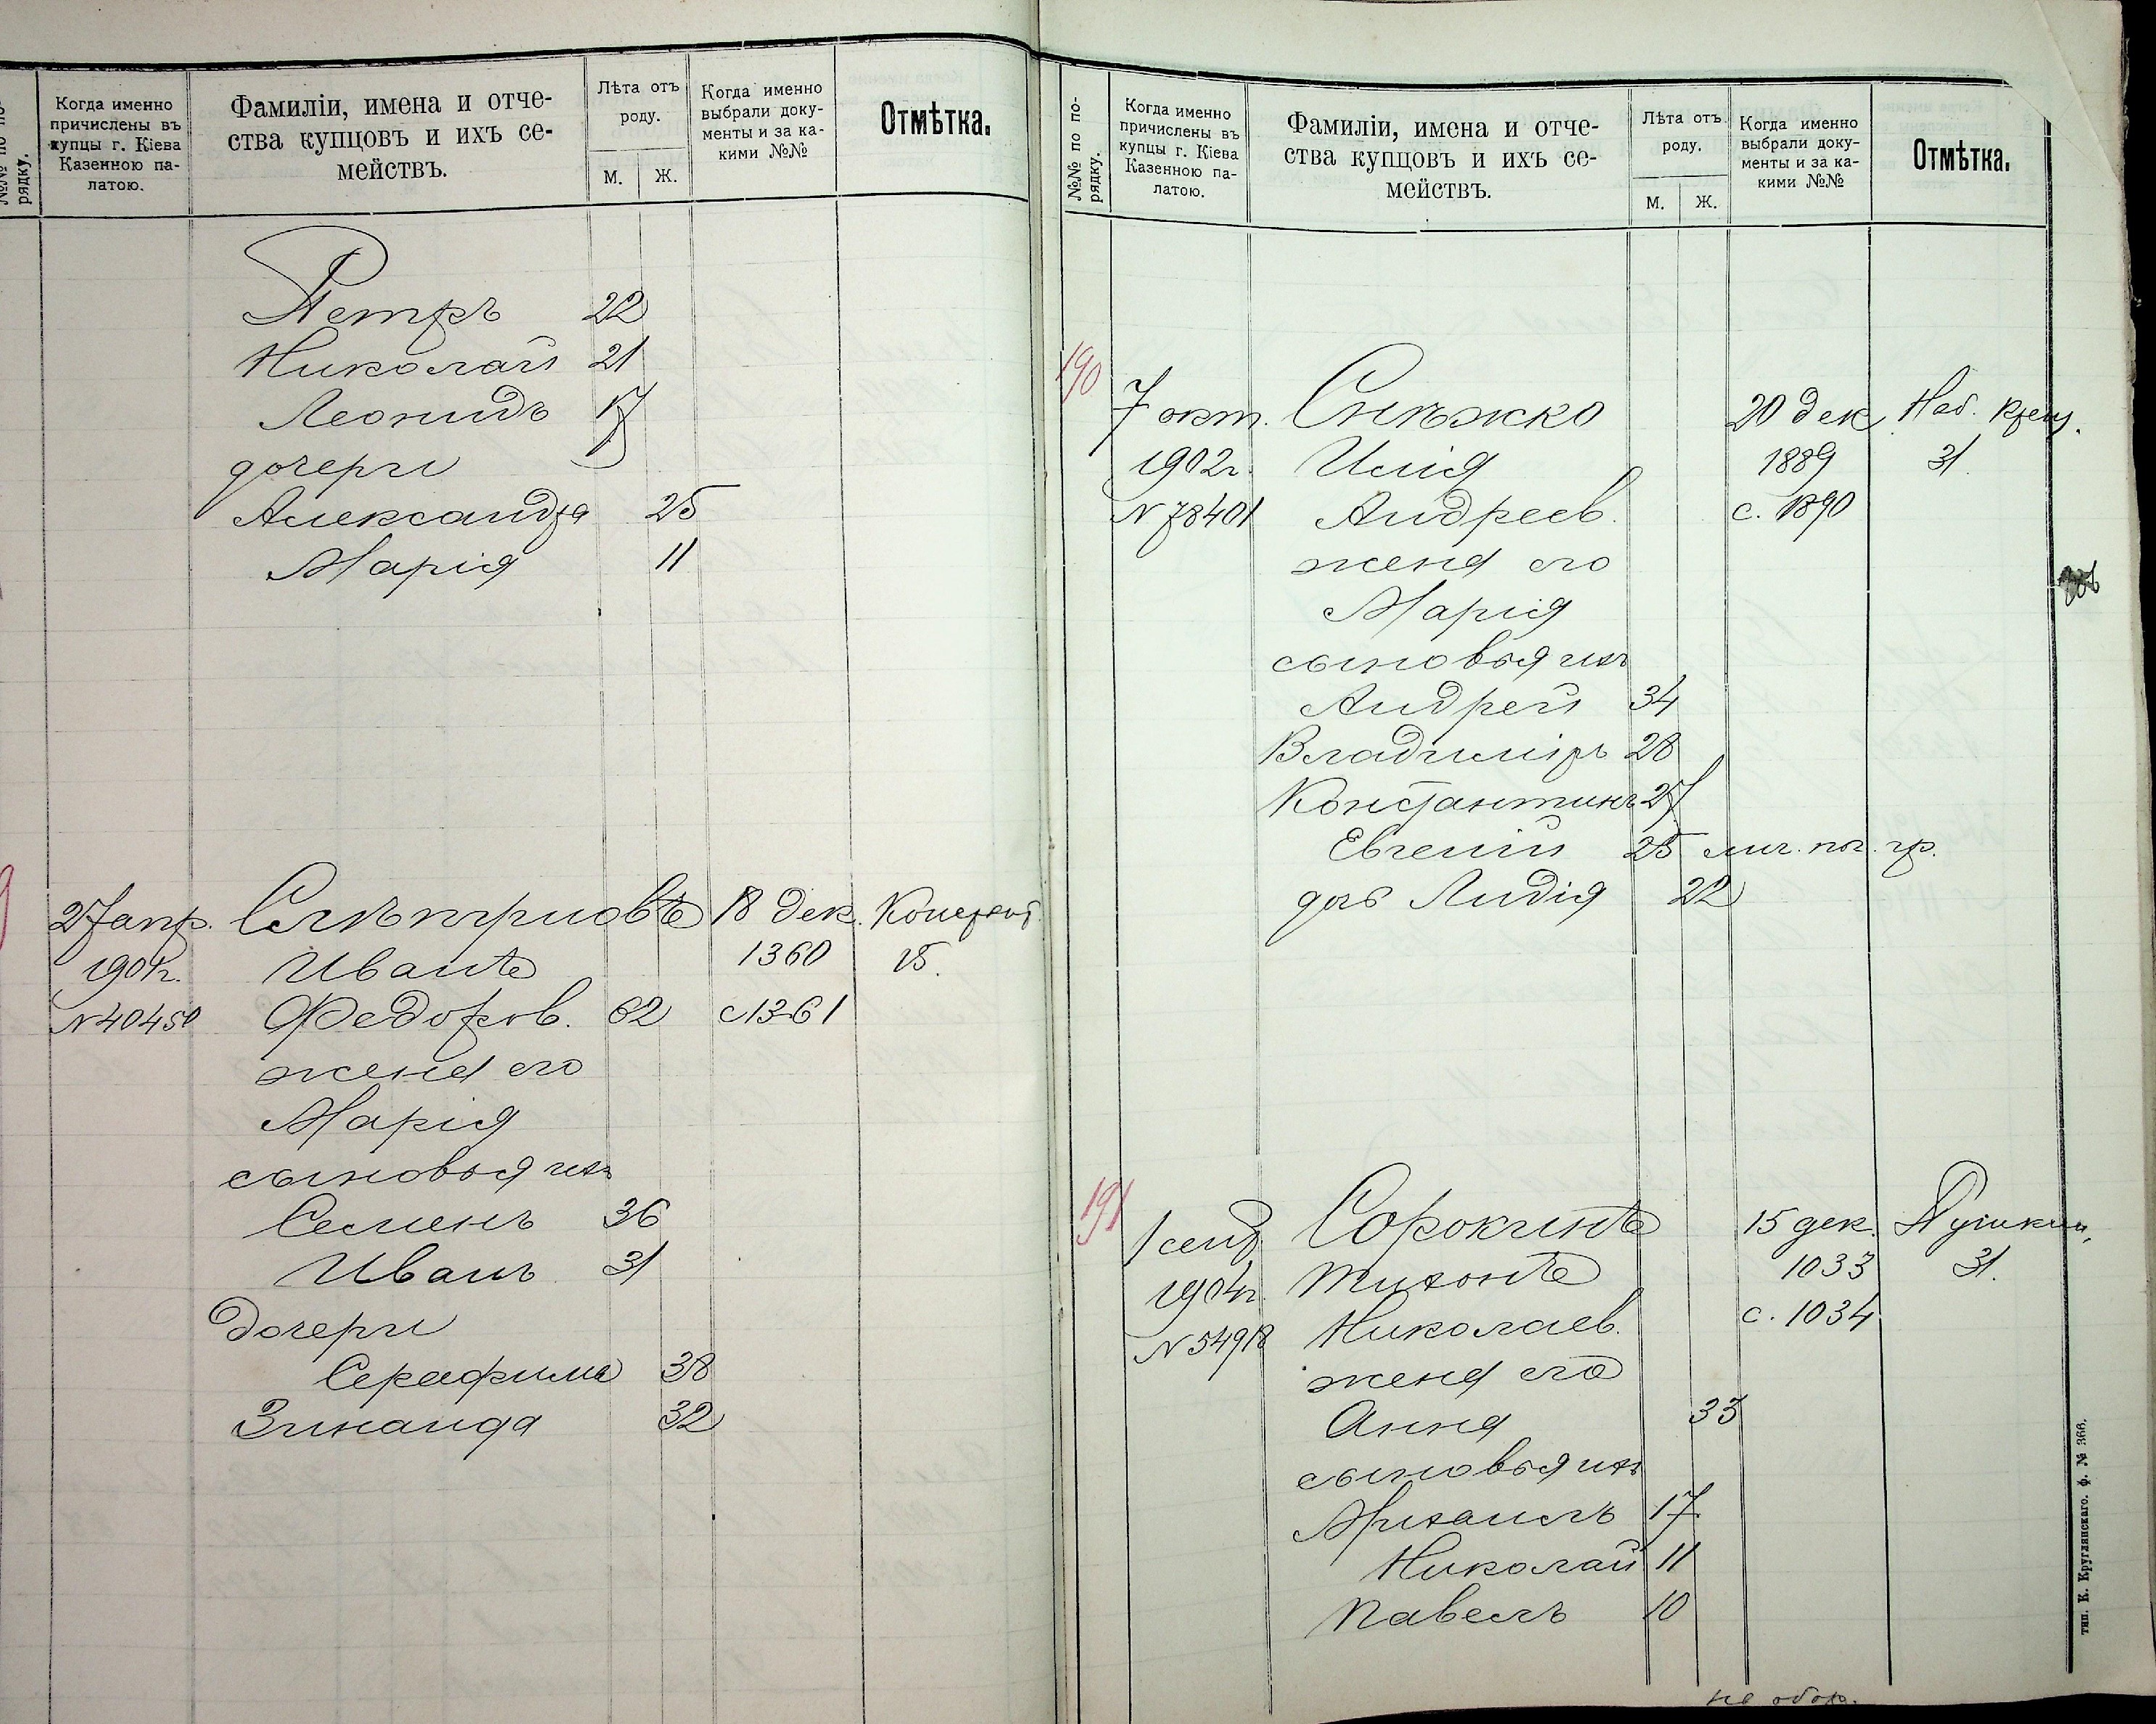 №№ по по-
рядку.
Когда именно
причислены въ
купцы г. Кіева
Казенною па-
латою.
Фамиліи, имена и отче-
ства купцовъ и ихъ се-
мействъ.
Лѣта отъ
роду.
М. Ж.
Когда именно
выбрали доку-
менты и за ка-
кими №№
Отмѣтка.
Петръ 22
Николай 21
Леонидъ 17
дочери
Александра 25
Марія 11
27 апр. 18 дек.
Иванъ 1360 15.
N 40450 Федоров. 62 с 1361
жена его
Марія
сыновья ихъ
Семенъ 36
Иванъ 31
Дочери
Серафима 38
Зинаида 32
№№ по по-
рядку.
Когда именно
причислены въ
купцы г. Кіева
Казенною па-
латою.
Фамиліи, имена и отче-
ства купцовъ и ихъ се-
мействъ.
Лѣта отъ
роду.
М. Ж.
Когда именно
выбрали доку-
менты и за ка-
кими №№
Отмѣтка.
190
7 окт. Снѣжко 20 дек. Наб. Крещ.
1902г. Илія 1889 31
N 78401 Андреев. с. 1890
жена его
Марія
сыновья ихъ
Андрей 34
Владиміръ 28
Константинъ 27
Евгеній 25 лич. поч. гр.
дочь Лидія 22
191
1 сент. Сорокинъ 15 дек. Пушкин.
1904г. Тихонъ 1033 31.
N 54918 Николаев. с. 1034
жена его
Анна 33
сыновья ихъ
Михаилъ 17
Николай 11
Павелъ 10
на обор.
тип. К. Круглянскаго. ф. № 366.